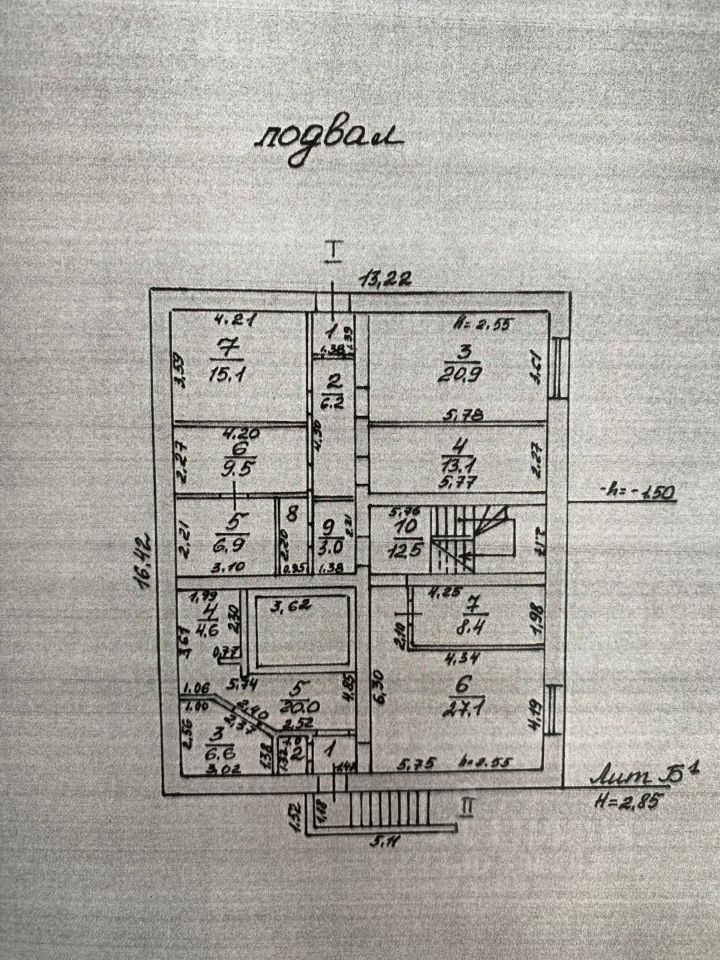 подвал
I
13,22
4.21
1
h=2.55
7
15.1
3,59
1.38
1.39
3
20.9
3.61
2
6.2
5.78
4.20
6
9.5
2.27
4.50
4
13.1
5,77
2.27
-h=-1.50
5
6.9
2.21
3.10
8
2.20
0.95
9
3.0
2,21
1.38
5.76
10
12.5
2.17
16,42
1,99
4
4.6
2,30
3,67
0.77
3,62
4.25
7
8.4
2.10
1,98
4.34
1.06
5.74
5
20.0
4.85
6,30
6
27,1
4,19
1.00
2.40
2.37
2.52
2.56
3
6.6
1.38
3.02
1.32
2
1
1.42
5,75
h=2.55
Лит Б¹
H=2,85
1.52
1,18
II
5,11